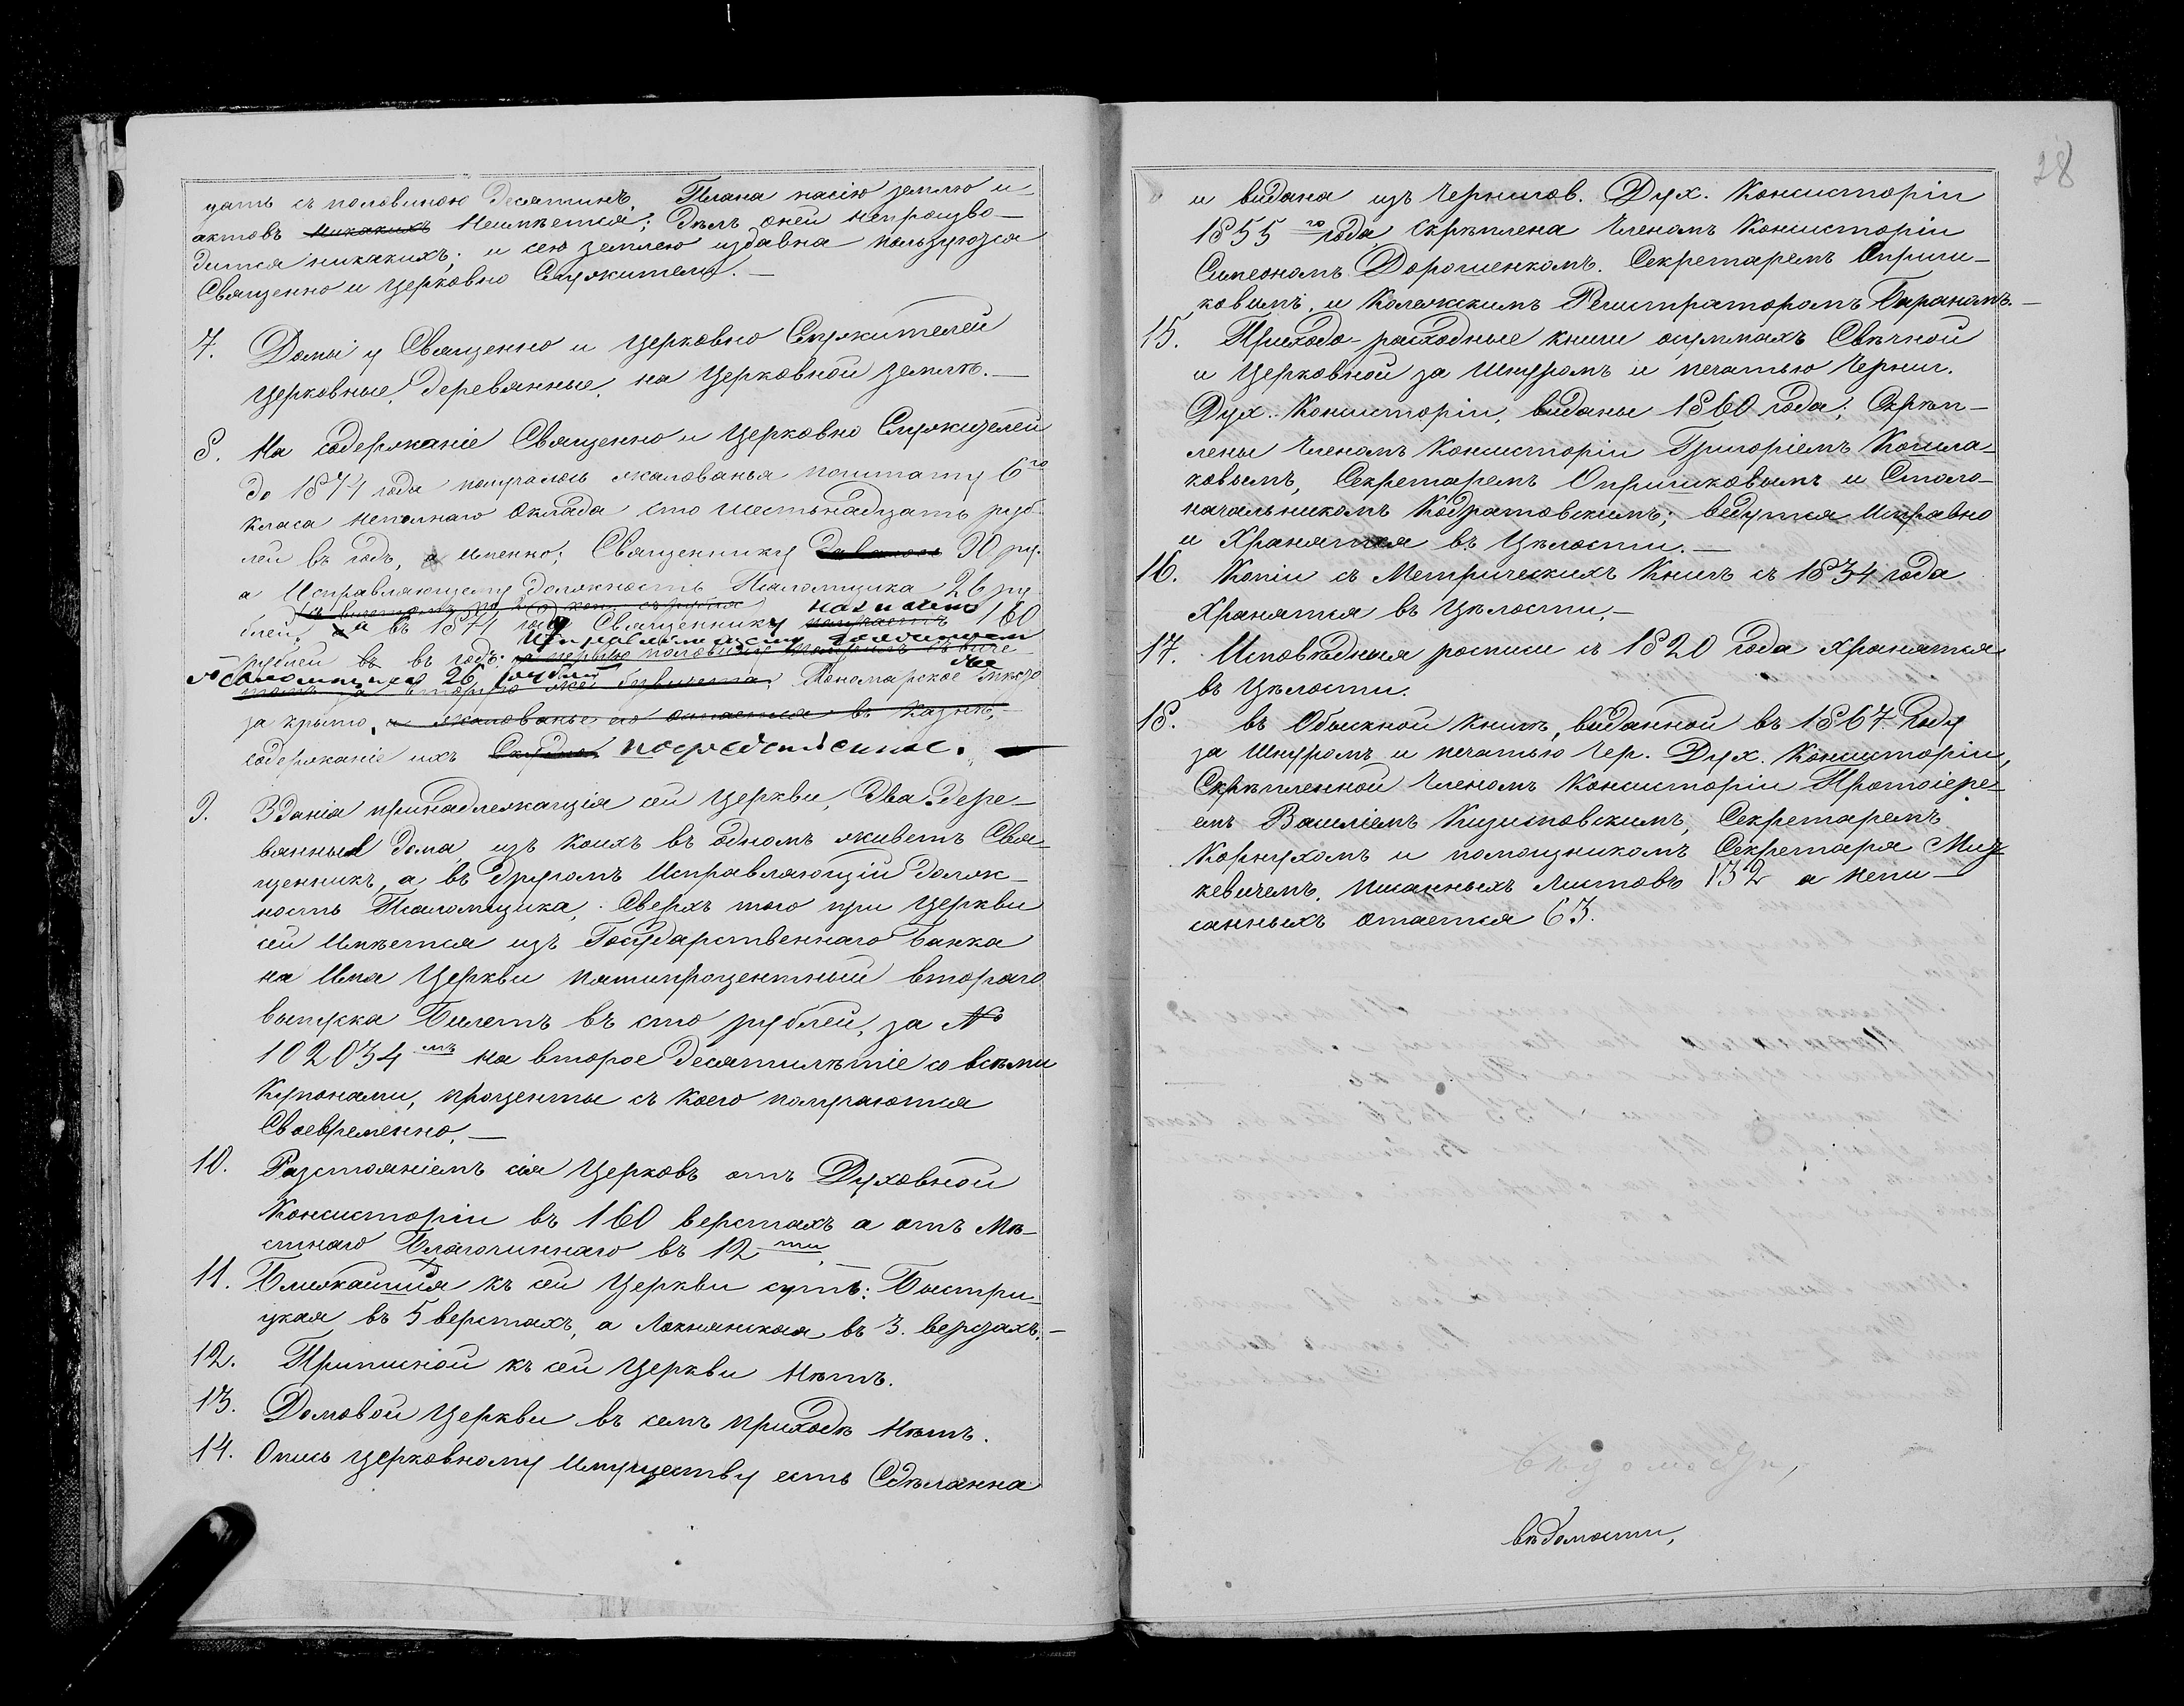 цать съ половиною десятинъ. Плана насію землю и
актовъ никакихъ Неимѣется; дѣлъ оней непроизво-
дится никакихъ; и сею землею издавна пользуются
Священно и Церковно Служители.—
7. Домы у Священно и Церковно Служителей
Церковные, деревянные, на Церковной землѣ.—
8. На содержаніе Священно и Церковно Служителей
до 1874 года получалось жалованья поштату 6го
класа неполнаго Оклада сто шестьнадцать руб-
лей въ годъ, а именно; Священнику давалось 90 ру.
а Исправляющему должность Псаломщика 26 ру-
блей, а въ 1874 году Священнику получаетъ назначено 180
рублей въ въ годъ: Исправляющему должность
Псаломщика 26 рублей Пономарское же мѣсто
за крыто, а жалованье его остается въ Казнѣ,
содержаніе ихъ Скудно посредственное.
9. Зданія принадлежащія сей Церкви, Два Дере-
вянныя дома, изъ коихъ въ одномъ живетъ Свя-
щенникъ, а въ другомъ Исправляющій долж-
ность Псаломщика. Сверхъ того при Церкви
сей Имѣется изъ Государственнаго Банка
на Имя Церкви пятипроцентный втораго
выпуска Билетъ въ сто рублей, за №
102034мъ на второе десятилѣтіе со всѣми
Купонами, проценты съ коего получаются
Своевременно.—
10. Разстояніемъ сія Церковъ отъ Духовной
Консисторіи въ 160 верстахъ а отъ Мѣ-
стнаго Благочиннаго въ 12ти.—
11. Ближайшія къ сей Церкви суть: Быстри-
цкая въ 5 верстахъ, а Локнянская въ 3. верстахъ.—
12. Приписной къ сей Церкви Нѣтъ.
13. Домовой Церкви въ семъ приходѣ Нѣтъ.
14. Опись Церковному Имуществу есть Сдѣланна
28
и видана изъ Чернигов. Дух. Консисторіи
1855го года, скрѣплена Членомъ Консисторіи
Симеономъ Дорошенкомъ. Секретаремъ Оприш-
ковымъ, и Колежскимъ Регистраторомъ Бараномъ.—
15. Приходо-расходные книги осуммахъ Свѣчной
и Церковной за Шнуромъ и печатью Черниг.
Дух. Консисторіи, виданы 1860 года; Скрѣп-
лены Членомъ Консисторіи Григоріемъ
ковымъ, Секретаремъ Опришковымъ и Столо-
начальникомъ Кодратовскимъ; ведутся Исправно
и Хранятся въ Цѣлости.—
16. Копіи съ Метрическихъ Книгъ съ 1834 года
Хранятся въ Цѣлости.—
17. Исповѣдныя росписи съ 1820 года Хранятся
въ Цѣлости.
18. въ Обыскной книгѣ, виданной въ 1867 Году
за Шнуромъ и печатью Чер. Дух. Консисторіи,
Скрѣпленной Членомъ Консисторіи Протоіере-
емъ Василіемъ Секретаремъ
Корнухомъ и помощникомъ Секретаря Миц-
кевичемъ, писанныхъ листовъ 132 а непи-
санныхъ отается 63.
вѣдомости,